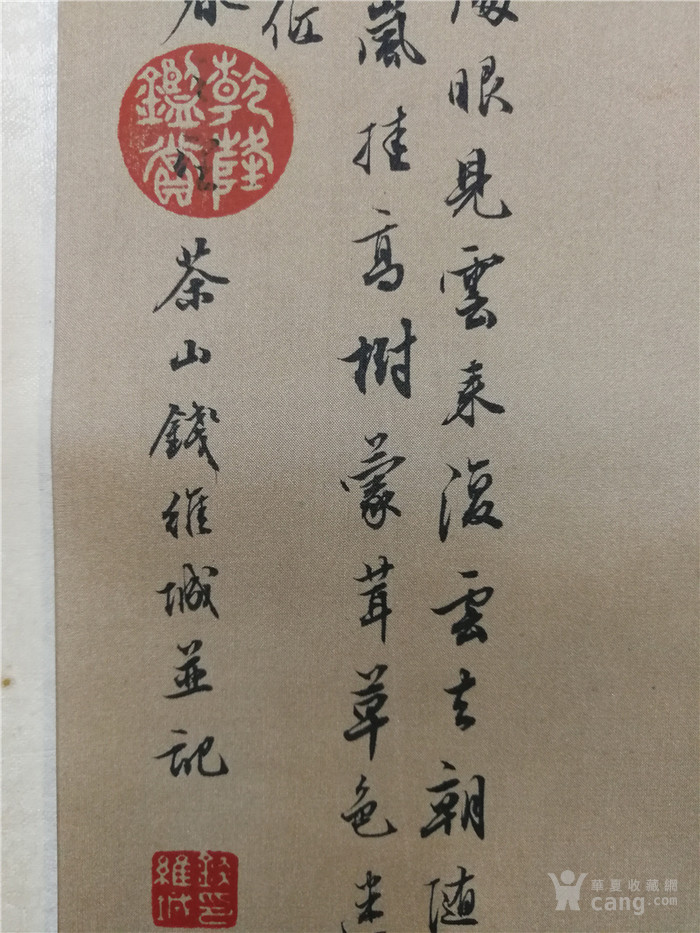 眼見雲来復雲去朝随
嵐挂高樹蒙茸草色迷
作
春
茶山錢維城並記
乾隆鑑賞
錢維城印
華夏收藏網
cang.com